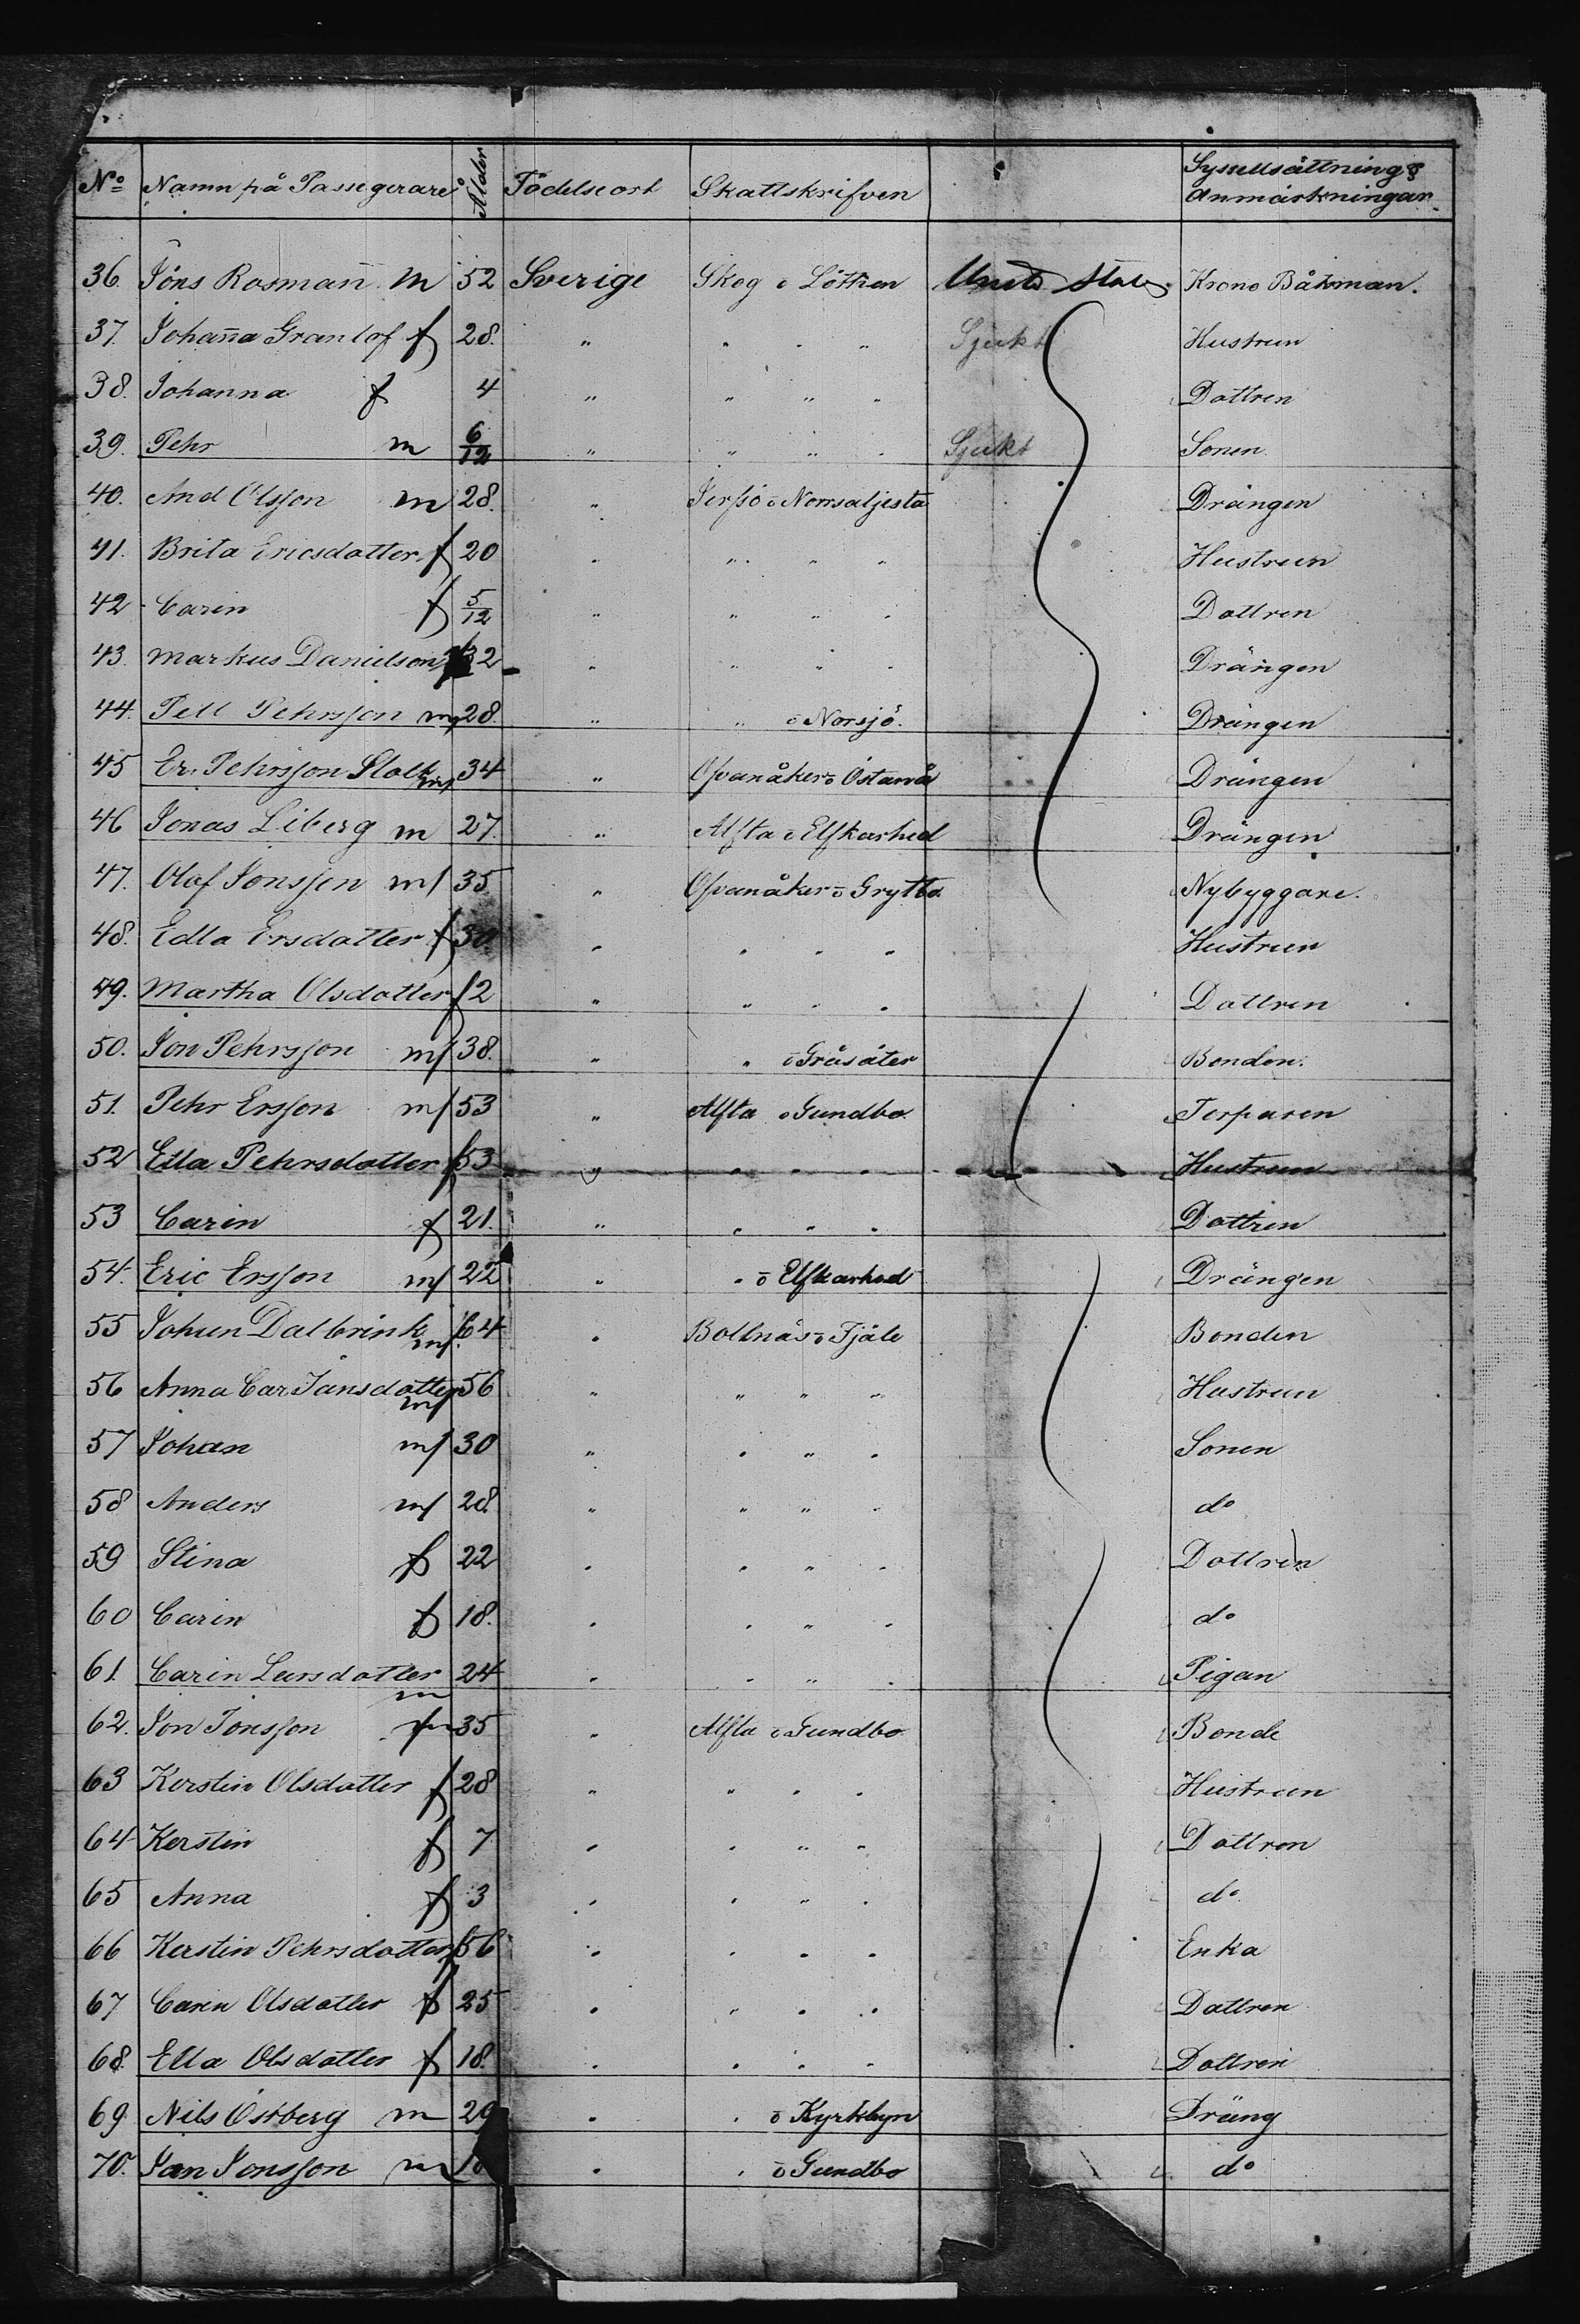 No Namn på Passegerare Ålder Födelseort Skattskrifven Sysselsättning & Anmärkningar.
36. Jöns Rosmañ m 52 Sverige Skog o Löthen Unitd States Krono Båtsman.
37. Johaña Granlöf f 28. " " " " Sjukt Hustrun
38. Johanna f 4 " " " " Dottren
39. Pehr m 6/12 " " " " Sjukt Sonen
40. And Olsson m 28. " Jerfsö o Norrsäljesta Drängen
41. Brita Ericsdotter f 20 " " " " Hustrun
42 Carin f 5/12 " " " " Dottren
43. Markus Danielson 32 " " " " Drängen
44. Pell Pehrsson m 28. " " o Norsjö. Drängen
45 Er. Pehrsson m 34 " Ofvanåker o Östanå Drängen
46 Jonas Liberg m 27. " Alfta o Elfkarhed Drängen
47. Olof Jonsson m/ 35. " Ofvanåker o Grytbo Nybyggare.
48. Edla Ersdotter f 30. " " " " Hustrun
49. Martha Olsdotter f 2 " " " " Dottren
50. Jon Pehrsson m/ 38. " " o Gråsäter Bonden.
51. Pehr Ersson m/ 53 " Alfta o Gundbo Torparen
52 Ella Pehrsdotter f 53 " " " " Hustrun
53 Carin f 21. " " " " Dottren
54. Eric Ersson m/ 22 " " o Elfkarhed Drängen
55 Johun Dalbrink m/ 64 " Bollnäs o Fjäle Bonden
56 Anna Car. Jansdotter m/ 56 " " " " Hustrun
57 Johan m/ 30 " " " " Sonen
58 Anders m/ 28. " " " " do
59 Stina f 22 " " " " Dottren
60 Carin f 18. " " " " do
61. Carin Larsdotter 24 " " " " Pigan
62. Jon Jonsson m 35 " Alfta o Gundbo Bonde
63 Kerstin Olsdotter f 28 " " " " Hustrun
64 Kerstin f 7 " " " " Dottren
65 Anna f 3 " " " " do
66 Kerstin Pehrsdotter f 56 " " " " Enka
67 Carin Olsdotter f 25 " " " " Dottren
68. Ella Olsdotter f 18. " " " " Dottren
69. Nils Östberg m 29 " " o Kyrkbyn Dräng
70. Jan Jonsson m " " o Gundbo do